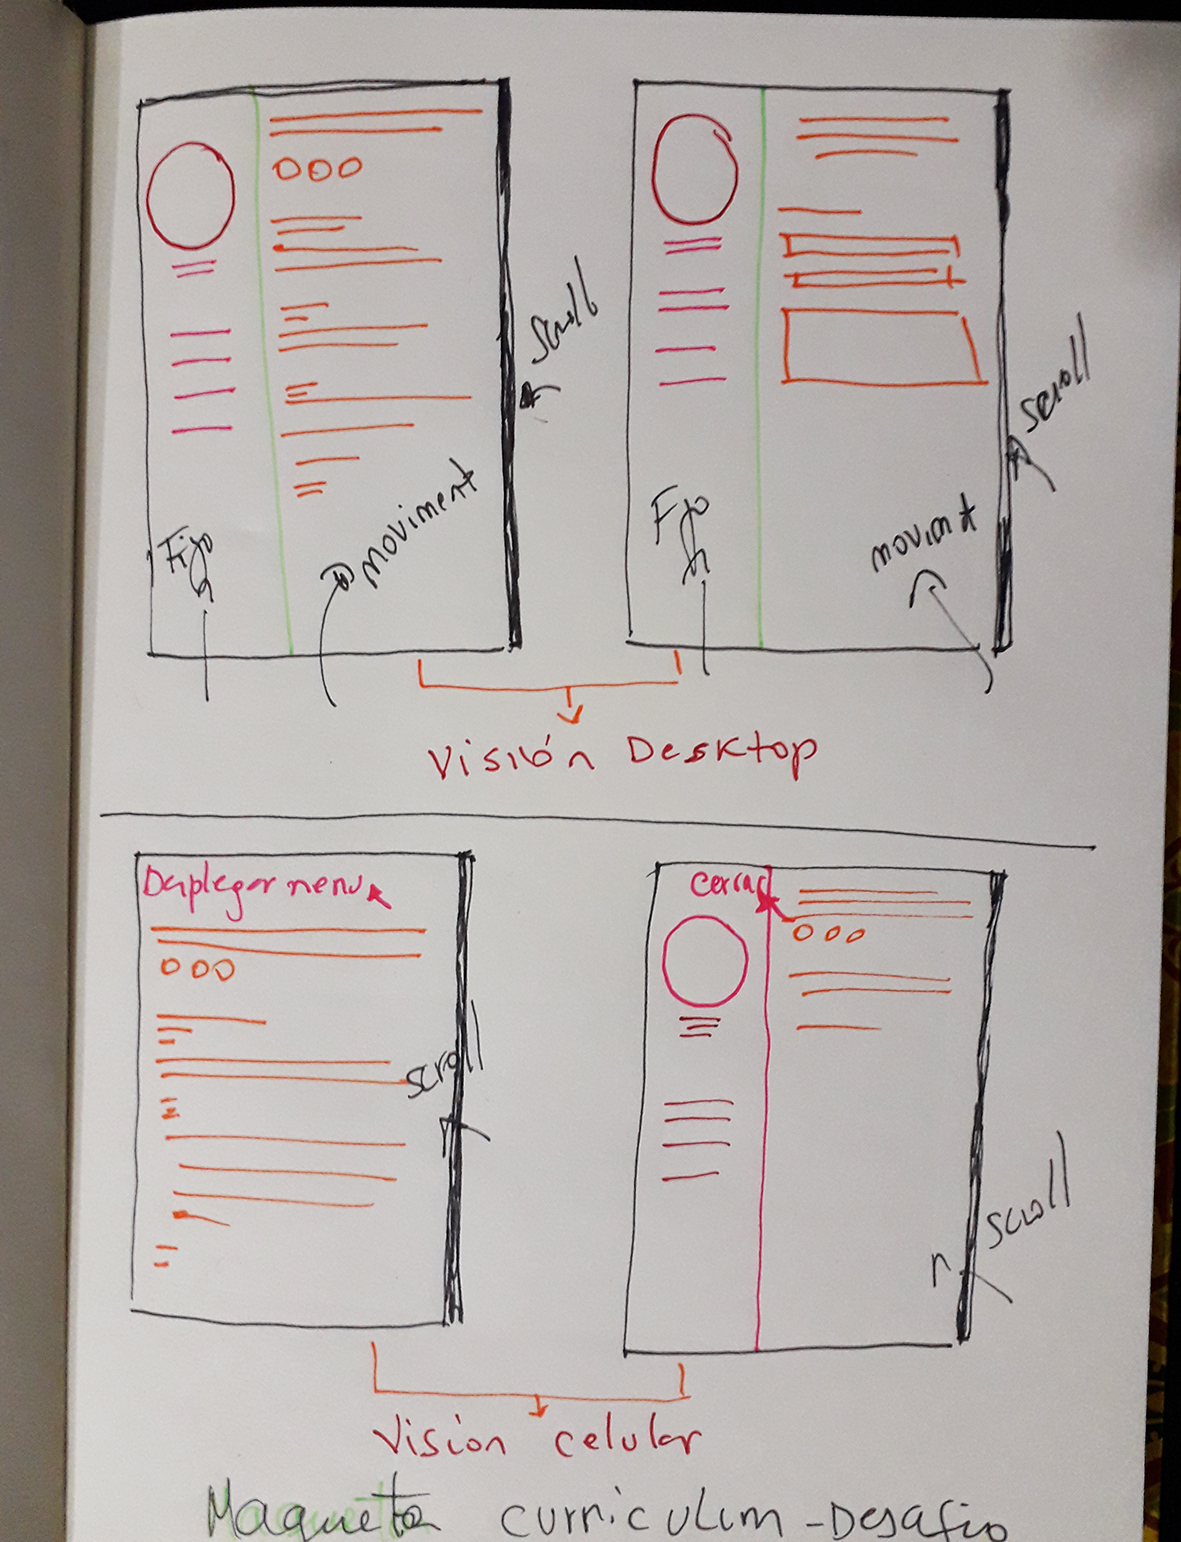 scroll
scroll
Fijo
moviment
Fijo
movimt
Visión Desktop
Desplegar menu
cerrar
scroll
scroll
Visión celular
Maqueta curriculum - Desafio